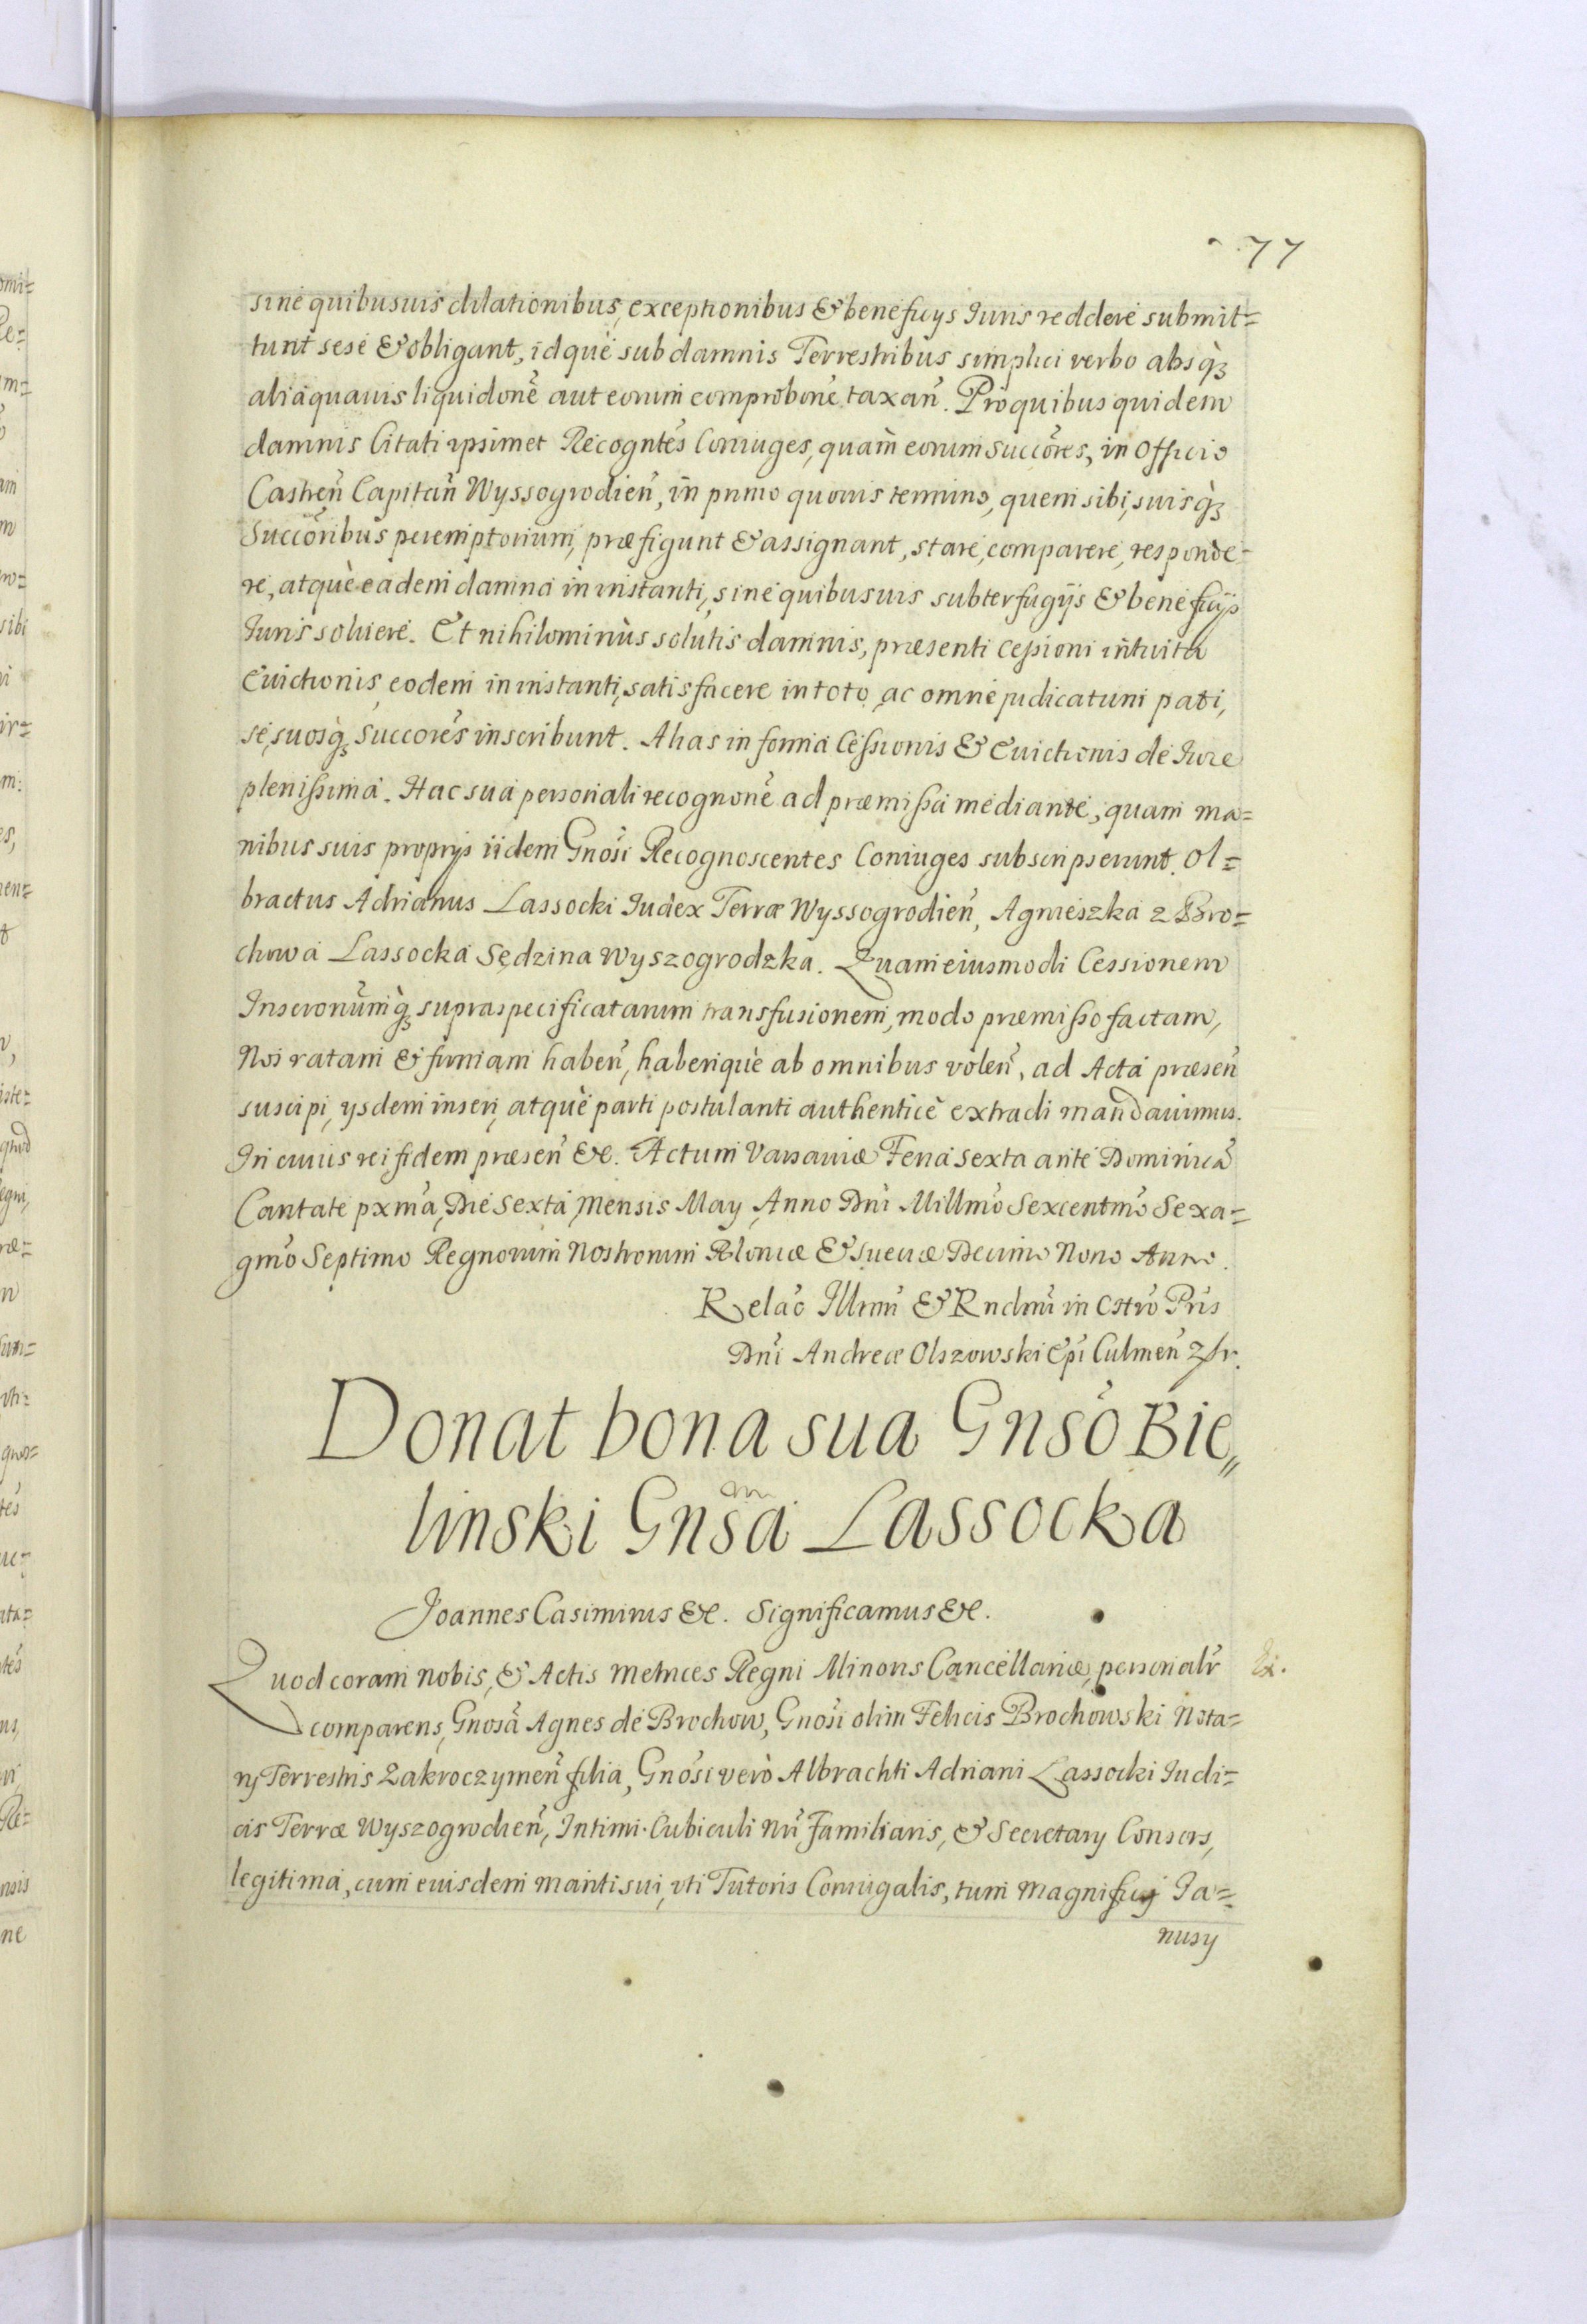 77
sine quibusuis dilationibus, exceptionibus & beneficys Iuris reddere submit=
tunt sese & obligant, idque sub damnis Terrestribus simplici verbo absq̀ꝫ
alia quauis liquidone aut eorum comprobone taxan. Pro quibus quidem
damnis Citati ipsimet Recogntes Coniuges, quam eorum succores, in Officio
Castren Capitan Wyssogrodien, in primo quouis termino, quem sibi, suisq̀ꝫ
Succoribus peremptorium, præfigunt & assignant, stare, comparere, responde=
re, atquè eadem damna in instanti, sine quibusuis subterfugijs & beneficijs
Iuris soluere. Et nihilominùs solutis damnis, præsenti Cessioni intuitu
Euictionis, eodem in instanti, satisfacere in toto, ac omne judicatum pati,
se, suosq̀ꝫ Succores inscribunt. Alias in forma Cessionis & Euictionis de Iure
plenissima. Hac sua personali recognone ad præmissa mediante, quam ma=
nibus suis proprijs iidem Gnosi Recognoscentes Coniuges subscripserunt. Ol=
bractus Adrianus Lassocki Iudex Terræ Wyssogrodien, Agnieszka z Bro=
chowa Lassocka Sędzina Wyszogrodzka. Quam eiusmodi Cessionem
Inscronumq̀ꝫ supraspecificatarum transfusionem, modo præmisso factam,
Nos ratam & firmam haben, haberiquè ab omnibus volen, ad Acta præsen
suscipi, ysdem inseri, atquè parti postulanti authenticè extradi mandauimus.
In cuius rei fidem præsen &c. Actum Varsauiæ Feria sexta ante Dominicā
Cantate pxma, Die Sexta Mensis May Anno Dni Millmo Sexcentmo Sexa=
gmo Septimo Regnorum Nostrorum Poloniæ & Sueciæ Decimo Nono Anno.
Relao Illrmi & Rndmi in Chro Pris
Dni Andreæ Olszowski Epi Culmen
Donat bona sua Gnso Bie„
linski Gnsa Lassocka
Joannes Casimirus &c. Significamus &c.
Quod coram nobis, & Actis Metrices Regni Minoris Cancellariæ, personalr
comparens, Gnosa Agnes de Brochow, Gnosi olim Felicis Brochowski Nota=
rij Terrestris Zakroczymen filia, Gnosi verò Albrachti Adriani Lassocki Iudi=
cis Terræ Wyszogrodien, Intimi Cubiculi Nri Familiaris, & Secretary Consors,
legitima, cum eiusdem mariti sui, vti Tutoris Coniugalis, tum Magnificj Ja=
nusy